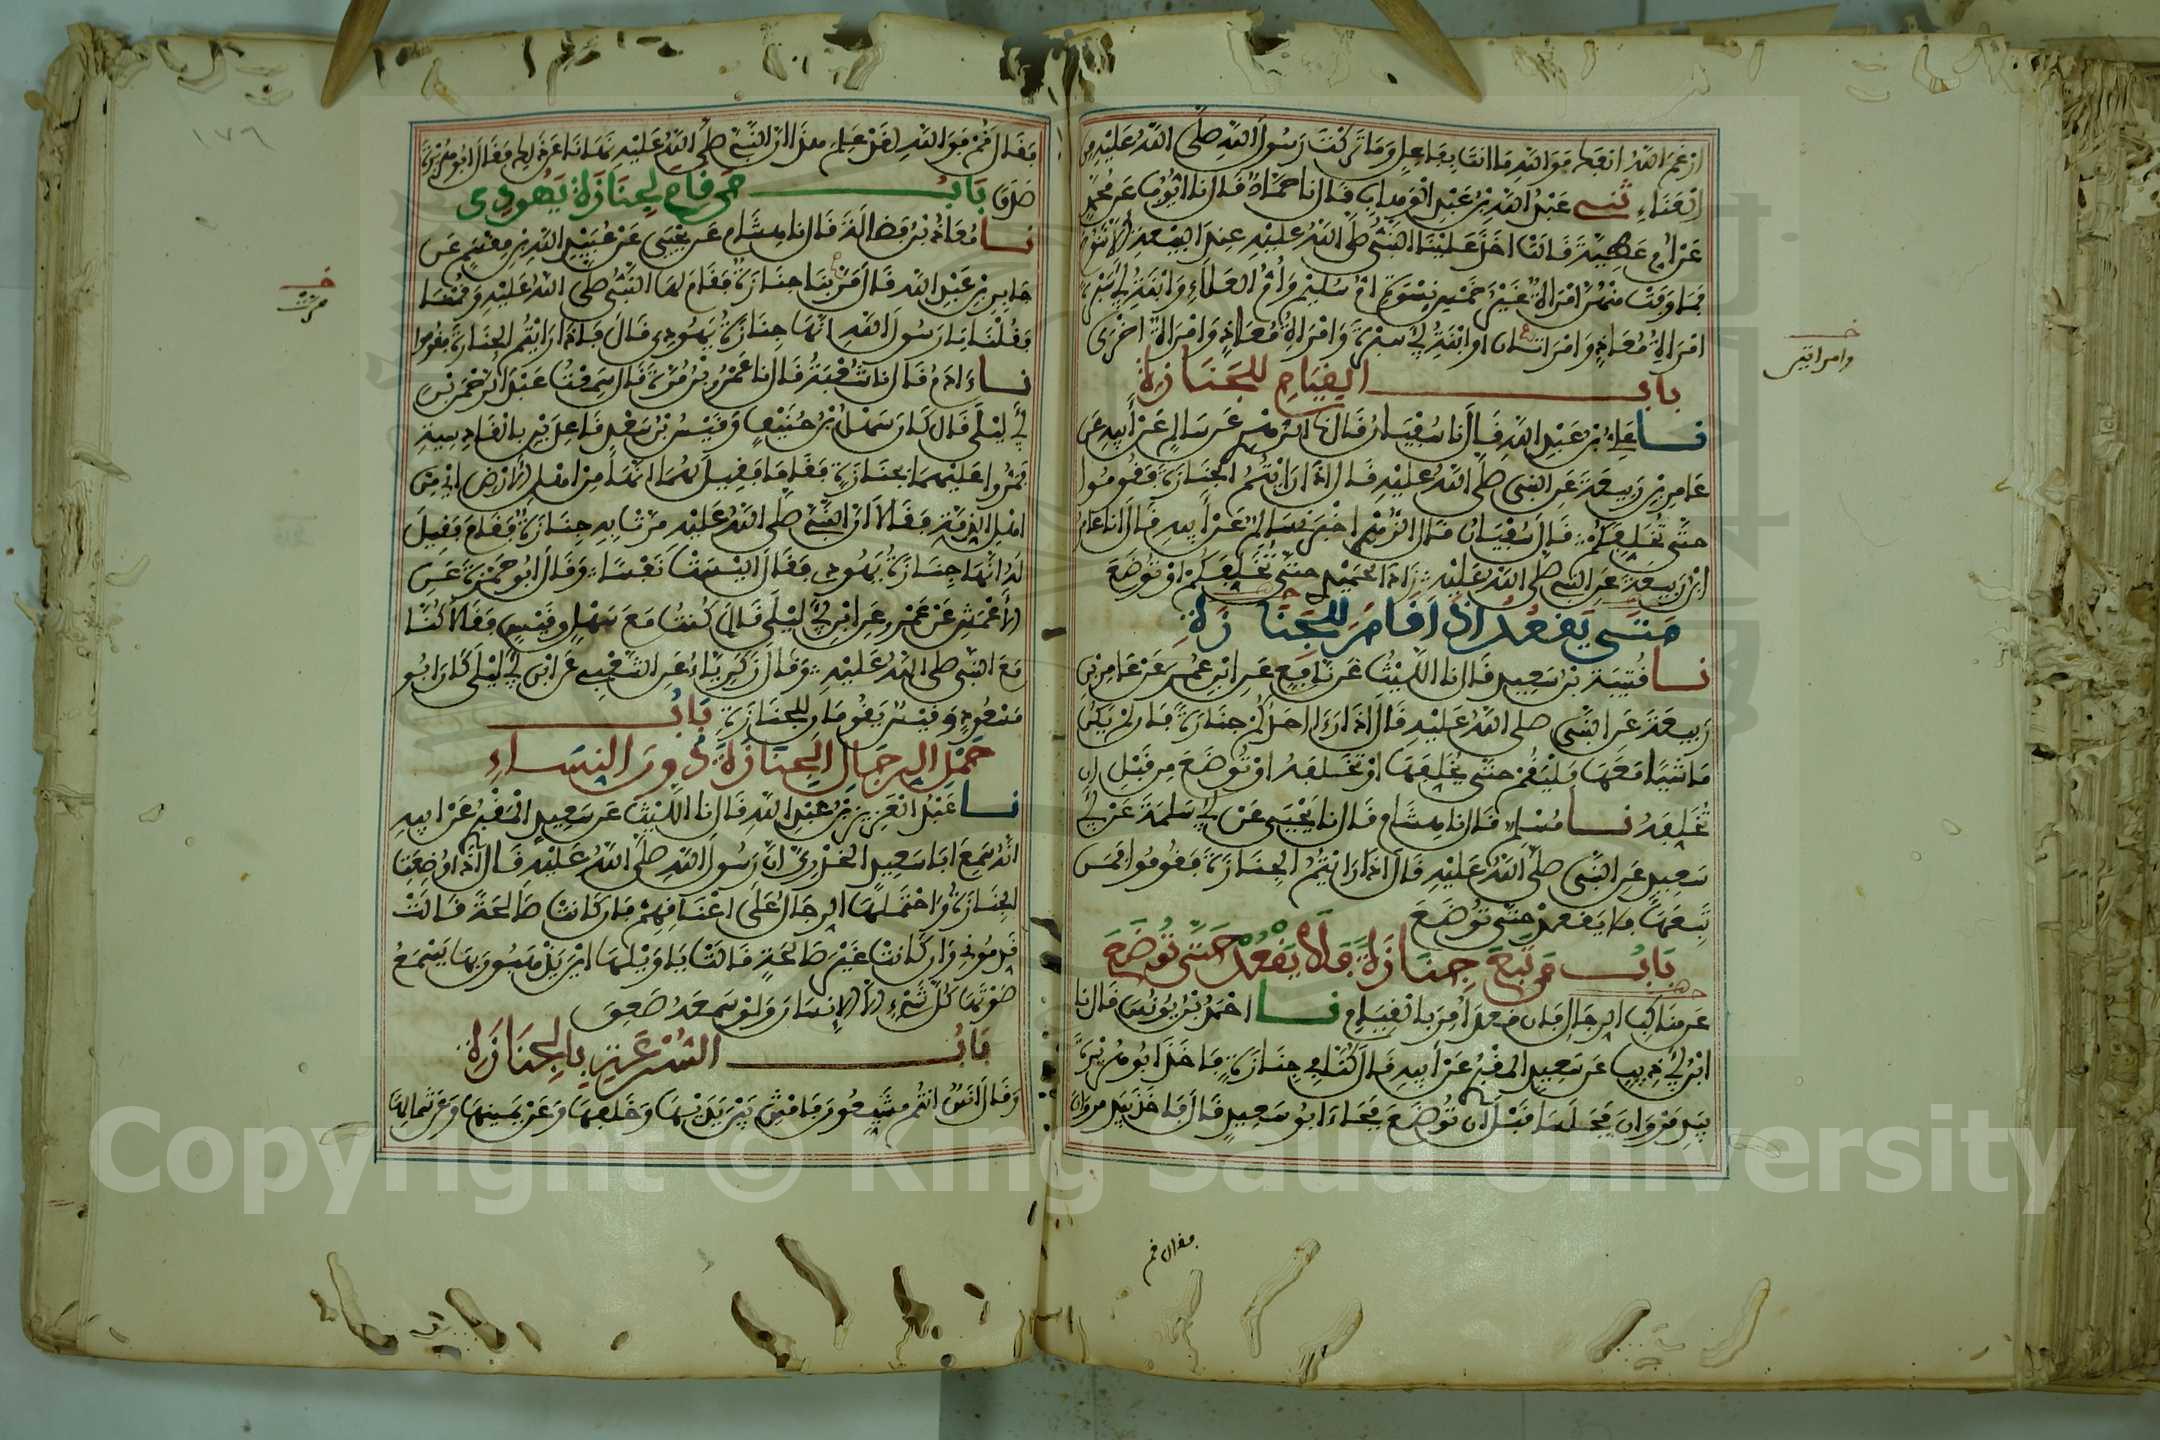 ارغم الله انفك فوالله ما انت بفاعل وما تركت رسول الله صلى الله عليه من
العناء ثنى عبد الله بن عبد الوهاب قال نا حماد قال نا ايوب عن محمد
عن ام عطية قالت اخذ علينا النبي صلى الله عليه عند البيعة ألا ننوح
فما وفت منهن امرأة غير خمس نسوة ام سليم وأم العلاء وابنة أبي سبرة
امرأة معاذ وامرأتان او ابنة أبي سبرة وامرأة معاذ وامرأة اخرى
خـ
وامراتين
باب القيام للجنازة
نا علي بن عبد الله قال نا سفيان قال نا الزهري عن سالم عن أبيه عن
عامر بن ربيعة عن النبي صلى الله عليه قال اذا رأيتم الجنازة فقوموا
حتى تخلفكم قال سفيان قال الزهري اخبرني سالم عن أبيه قال انا عامر
ابن ربيعة عن النبي صلى الله عليه زاد الحميدي حتى تخلفكم او توضع
متى يقعد اذا قام للجنازة
نا قتيبة بن سعيد قال نا الليث عن نافع عن ابن عمر عن عامر بن
ربيعة عن النبي صلى الله عليه قال اذا رءا احدكم جنازة فإن لم يكن
ماشيا معها فليقم حتى يخلفها او تخلفه او توضع من قبل ان
تخلفه نا مسلم قال نا هشام قال نا يحيى عن أبي سلمة عن أبي
سعيد عن النبي صلى الله عليه قال اذا رأيتم الجنازة فقوموا فمن
تبعها فلا يقعد حتى توضع
باب من تبع جنازة فلا يقعد حتى توضع
عن مناكب الرجال فان قعد أمر بالقيام نا احمد بن يونس قال نا
ابن أبي ذيب عن سعيد المقبري عن أبيه قال كنا في جنازة فاخذ ابو هريرة
بيد مروان فجلسا قبل ان توضع فجاء ابو سعيد قال فاخذ بيد مروان
فقال قم
١٧٦
فقال قم فوالله لقد علم هذا ان النبي صلى الله عليه نهانا عن ذلك فقال ابو هريرة
صدق باب من قام لجنازة يهودي
نا معاذ بن فضالة قال نا هشام عن يحيى عن عبيد الله بن مقسم عن
جابر بن عبد الله قال مر بنا جنازة فقام لها النبي صلى الله عليه وقمنا
خـ
مرت
فقلنا يا رسول الله انها جنازة يهودي قال فاذا رأيتم الجنازة فقوموا
نا ءادم قال نا شعبة قال نا عمرو بن مرة قال سمعت عبد الرحمن بن
أبي ليلى قال كان سهل بن حنيف وقيس بن سعد قاعدين بالقادسية
فمروا عليهما بجنازة فقاما فقيل لهما انها من اهل الارض اي من
اهل الذمة فقالا ان النبي صلى الله عليه مرت به جنازة فقام فقيل
له انها جنازة يهودي فقال أليست نفسا وقال ابو حمزة عن
الأعمش عن عمرو عن ابن أبي ليلى قال كنت مع سهل وقيس فقالا كنا
مع النبي صلى الله عليه وقال زكرياء عن الشعبي عن ابن أبي ليلى كان ابو
مسعود وقيس يقومان للجنازة باب
حمل الرجال الجنازة دون النساء
نا عبد العزيز بن عبد الله قال نا الليث عن سعيد المقبري عن ابيه
انه سمع ابا سعيد الخدري ان رسول الله صلى الله عليه قال اذا وضعت
الجنازة واحتملها الرجال على اعناقهم فإن كانت صالحة قالت
قدموني وإن كانت غير صالحة قالت يا ويلها اين يذهبون بها يسمع
صوتها كل شيء إلا الانسان ولو سمعه صعق
باب السرعة بالجنازة
وقال انس انتم مشيعون فامش بين يديها وخلفها وعن يمينها وعن شمالها
Copyright © King Saud University